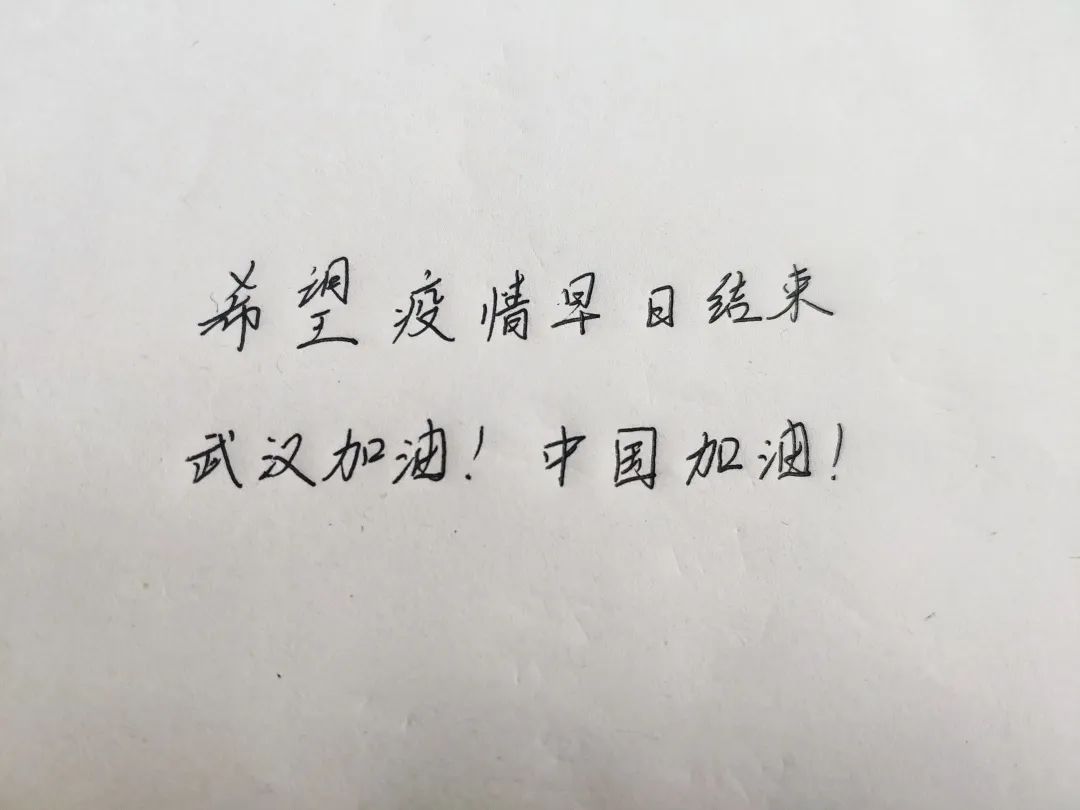 希望疫情早日结束
武汉加油！中国加油！